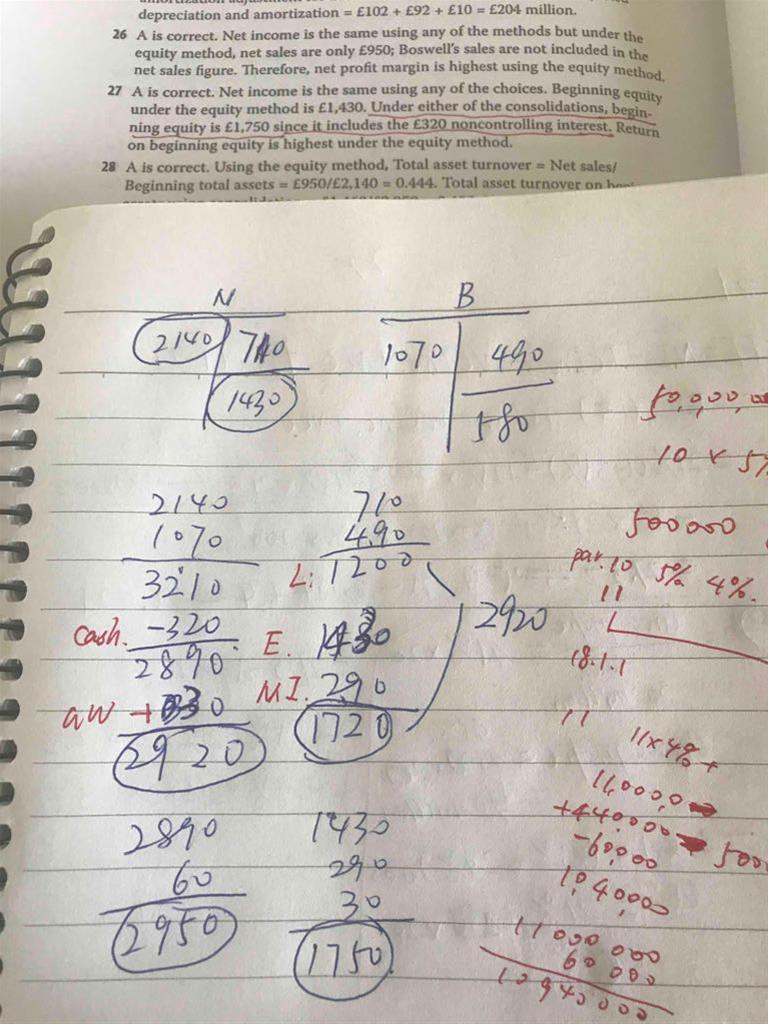 depreciation and amortization = £102 + £92 + £10 = £204 million.
26 A is correct. Net income is the same using any of the methods but under the
equity method, net sales are only £950; Boswell's sales are not included in the
net sales figure. Therefore, net profit margin is highest using the equity method.
27 A is correct. Net income is the same using any of the choices. Beginning equity
under the equity method is £1,430. Under either of the consolidations, begin-
ning equity is £1,750 since it includes the £320 noncontrolling interest. Return
on beginning equity is highest under the equity method.
28 A is correct. Using the equity method, Total asset turnover = Net sales/
Beginning total assets = £950/£2,140 = 0.444. Total asset turnover on
N
2140 710
1430
B
1070 490
580
2140
1070
3210
cash. -320
2890
GW + 30
2920
710
490
L: 1200
E. 1430
MI. 290
1720
2920
2890
60
2950
1430
290
30
1750
10 x 5%
500000
par.10 5% 4%.
11
18.1.1
11
11x4% +
+440000
-60,000
11000 000
60 000
10940000